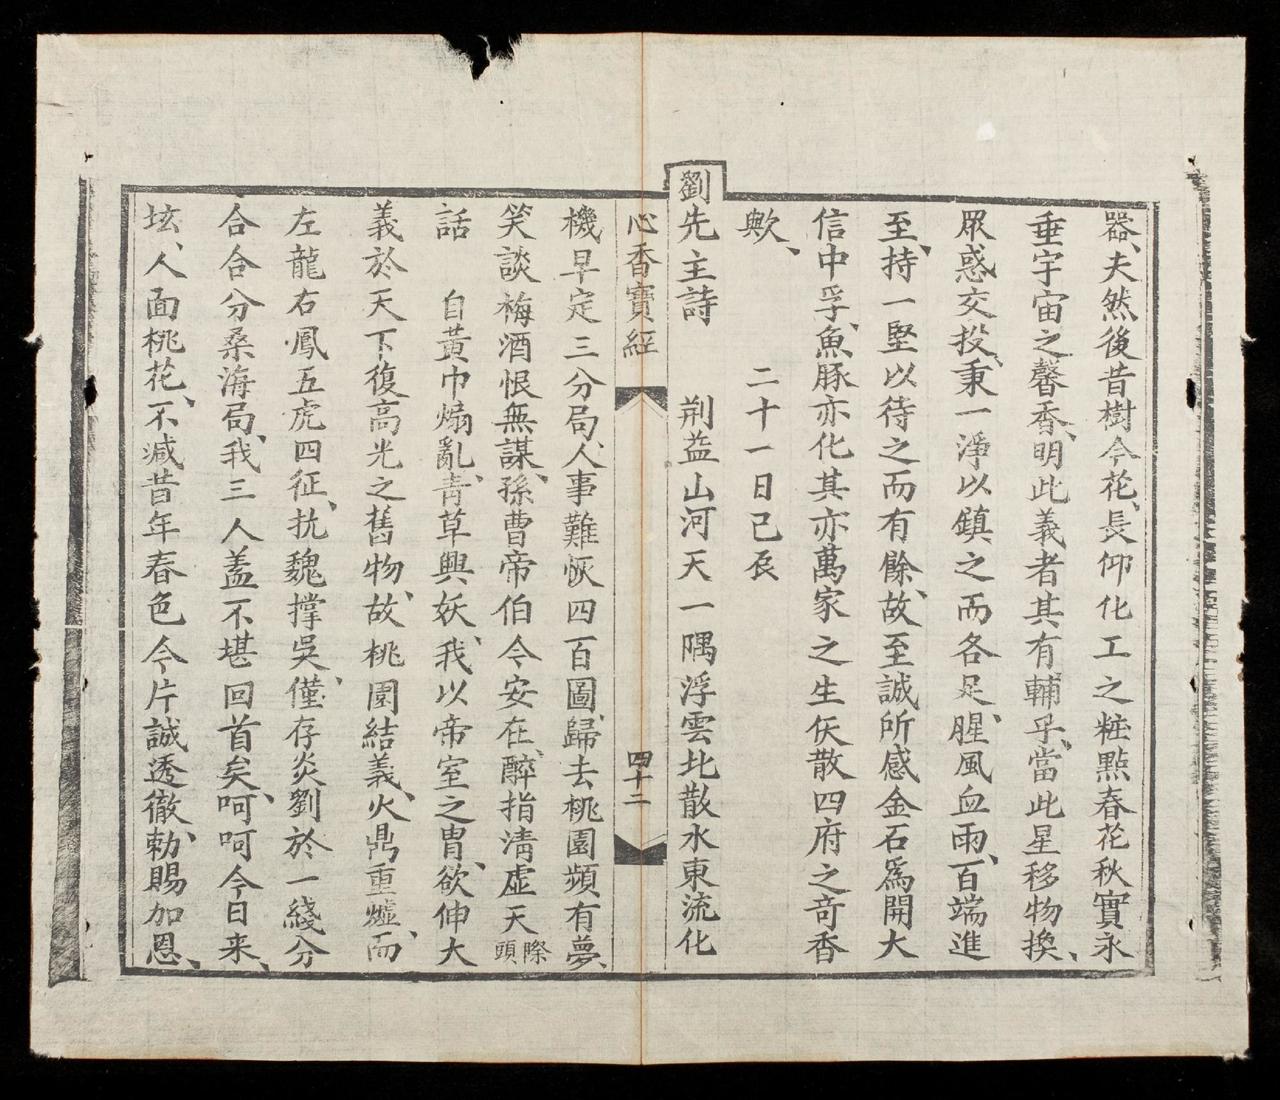 器、夫然後昔樹今花、長仰化工之粧點春花秋實永
垂宇宙之馨香、明此義者其有輔乎、當此星移物換、
眾惑交投、秉一淨以鎮之而各足、腥風血雨、百端進
至、持一堅以待之而有餘、故至誠所感金石爲開大
信中孚、魚豚亦化其亦萬家之生仸散四府之奇香
歟、
二十一日己辰
劉先主詩 荆益山河天一隅浮雲北散水東流化
心香寶經 四十二
機早定三分局、人事難恢四百圖、歸去桃園頻有夢、
笑談梅酒恨無謀、孫曹帝伯今安在、醉指清虛天際頭
話 自黃巾煽亂、青草興妖、我以帝室之胄、欲伸大
義於天下、復高光之舊物、故桃園結義、火鼎重爐、而
左龍右鳳五虎四征、抗魏撑吳、僅存炎劉於一綫分
合合分桑海局、我三人盖不堪回首矣、呵呵今日来、
坛、人面桃花、不減昔年春色今片誠透徹、勅賜加恩、